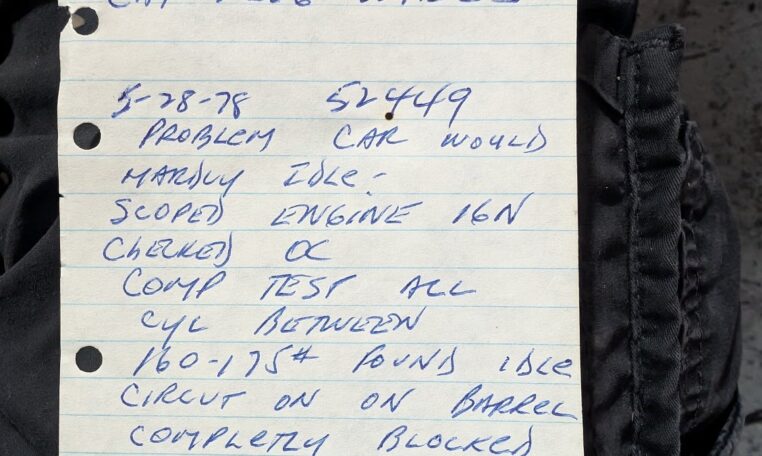 5-28-78 52449
PROBLEM CAR WOULD
HARDLY IDLE -
SCOPED ENGINE IGN
CHECKED OK
COMP TEST ALL
CYL BETWEEN
160-175# FOUND IDLE
CIRCUT ON ON BARREL
COMPLETLY BLOCKED